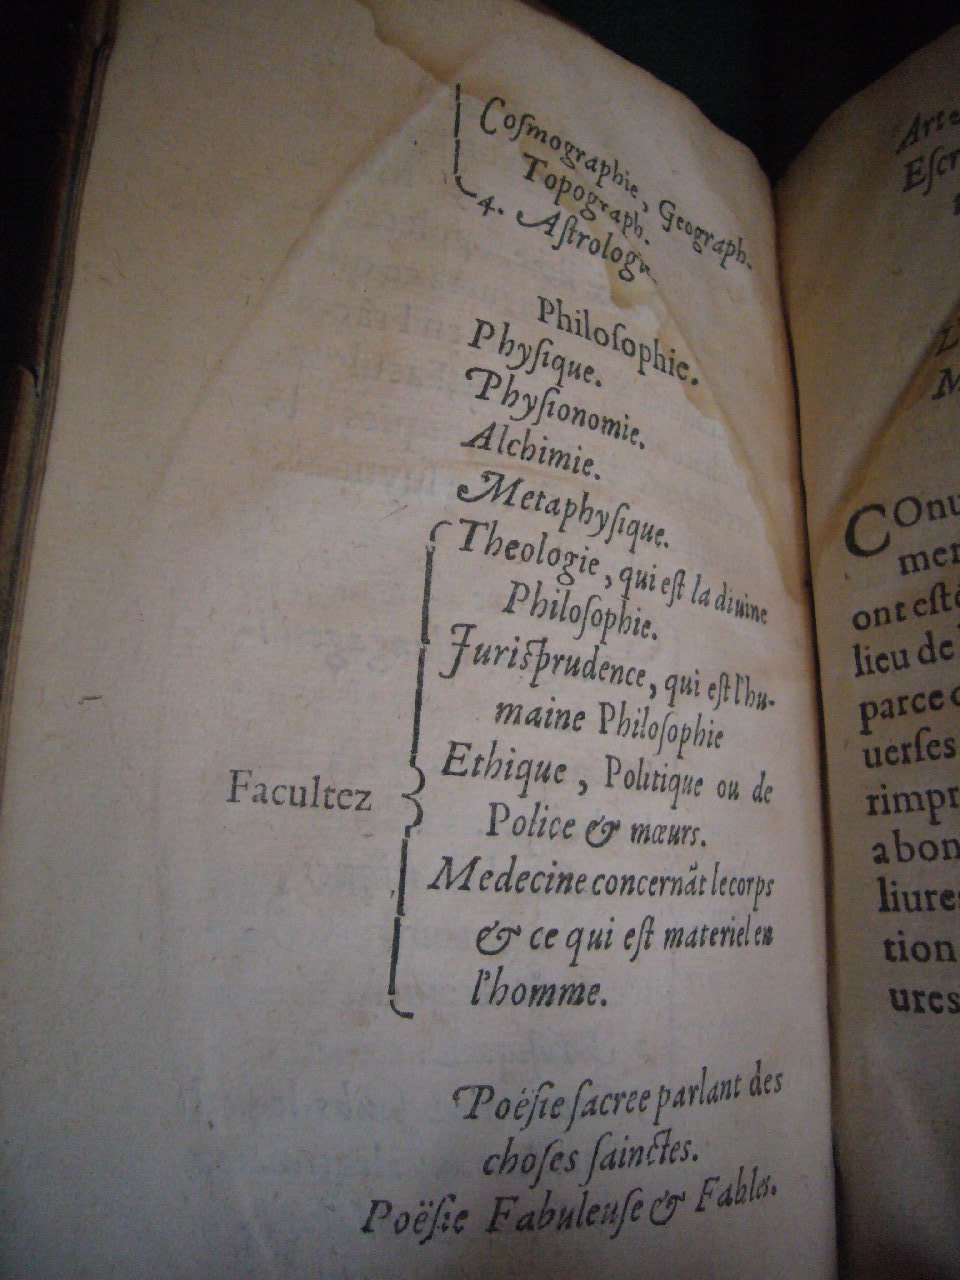 Cosmographie, Geograph.
Topograph.
4. Astrologie
Philosophie.
Physique.
Physionomie.
Alchimie.
Metaphysique.
Theologie, qui est la diuine
Philosophie.
Jurisprudence, qui est l'hu-
maine Philosophie
Facultez
Ethique, Politique ou de
Police & mœurs.
Medecine concernãt le corps
& ce qui est materiel en
l'homme.
Poësie sacree parlant des
choses sainctes.
Poësie Fabuleuse & Fables.
COnu
ont esté
lieu de
parce
uerses
rimpr
abon
liures
tion
ures